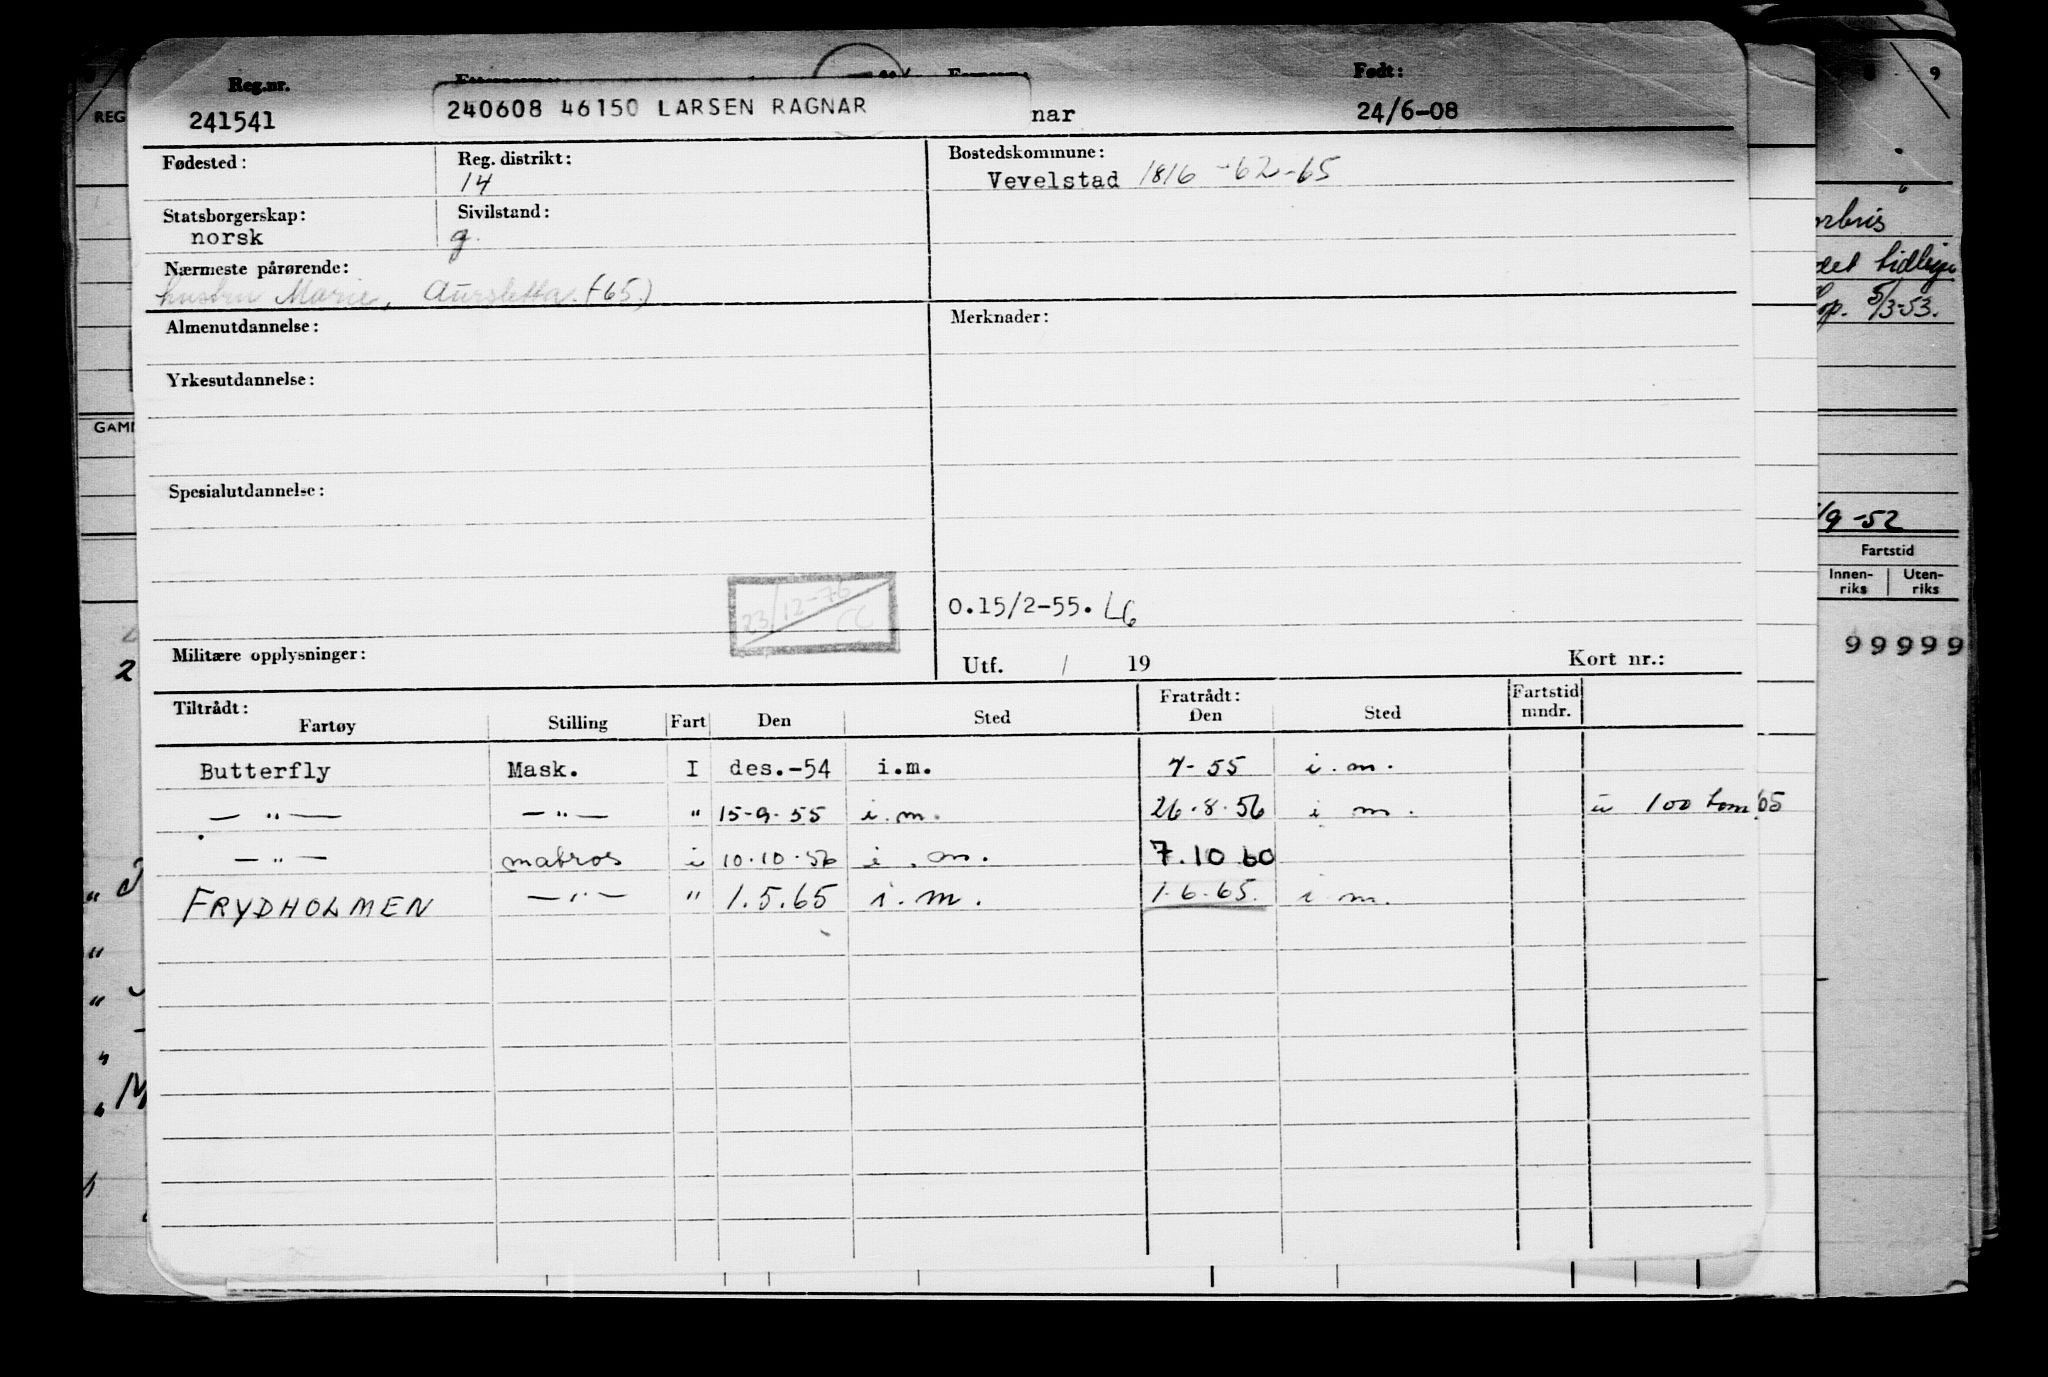 Reg.nr. Født:
241541 240608 46150 LARSEN RAGNAR nar 24/6-08
Fødested: Reg. distrikt: Bostedskommune:
14 Vevelstad 1816 -62-65
Statsborgerskap: Sivilstand:
norsk g.
Nærmeste pårørende:
hustru Marie, Aursletta (65)
Almenutdannelse: Merknader:
Yrkesutdannelse:
Spesialutdannelse:
23/12-76 CC
0.15/2-55. LG
Militære opplysninger: Utf. / 19 Kort nr.:
Tiltrådt: Fratrådt: Fartstid
Fartøy Stilling Fart Den Sted Den Sted mndr.
Butterfly Mask. I des.-54 i.m. 7-55 i.m.
— " — — " — " 15-9-55 i.m. 26.8.56 i m. u 100 tonn
— " — matros i 10.10.56 i.m. 7.10 60
FRYDHOLMEN — " — " 1.5.65 i.m. 1.6.65. i m.
REG
GAMM
9
det tidlige
5/3-53.
/9-52
Fartstid
Innen-riks Uten-riks
99999
2